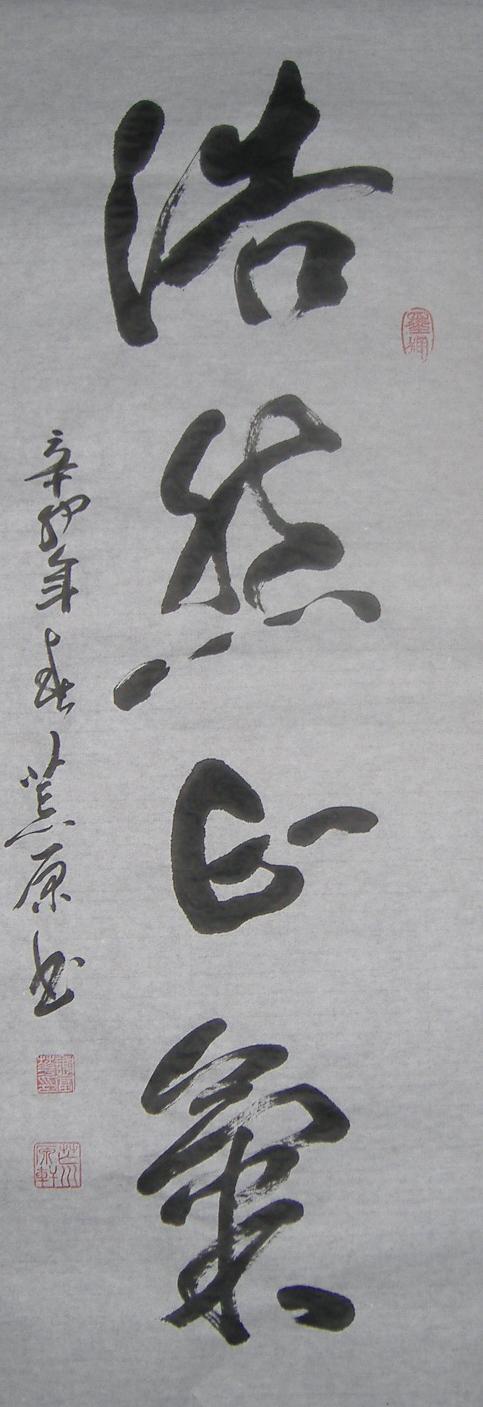 浩然正氣
辛卯年春 原书